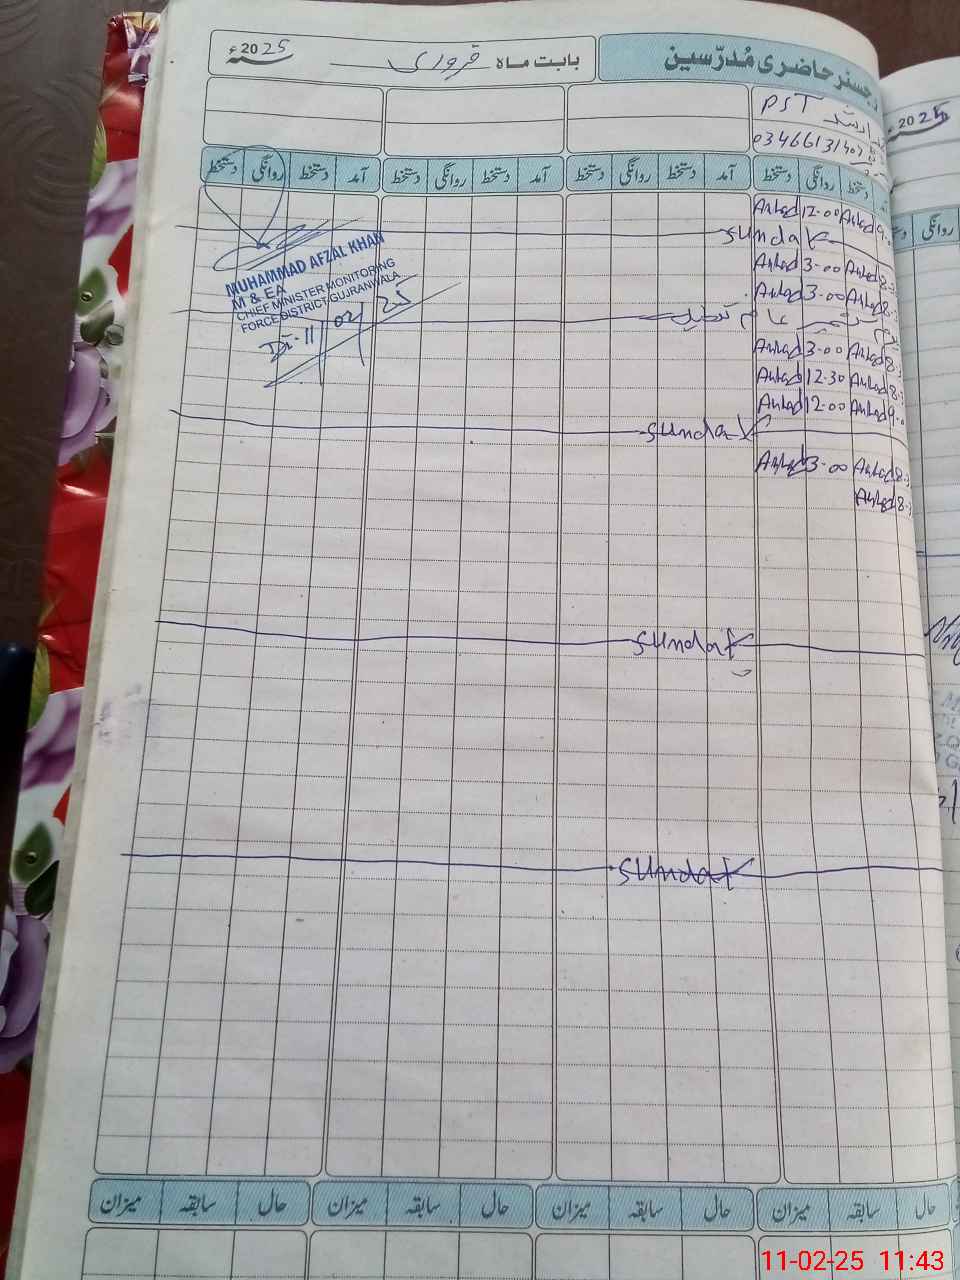 رجسٹر حاضری مُدرّسین
بابت ماہ فروری
2025ء
PST
ارشد
03466131407
2025
آمد دستخط روانگی دستخط آمد دستخط روانگی دستخط آمد دستخط روانگی دستخط دستخط روانگی دستخط
روانگی
Arshad 12-00 Arshad 9-0
Sunday
Arshad 3-00 Arshad 8-3
Arshad 3-00 Arshad 8-3
یوم کشمیر عام تعطیل
Arshad 3-00 Arshad 8-3
Arshad 12-30 Arshad 8-3
Arshad 12-00 Arshad 9-0
Sunday
Arshad 3-00 Arshad 8-3
Arshad 8-3
Sunday
Sunday
MUHAMMAD AFZAL KHAN
M & EA
CHIEF MINISTER MONITORING
FORCE DISTRICT GUJRANWALA
Dt-11/02/25
حال سابقہ میزان حال سابقہ میزان حال سابقہ میزان حال سابقہ میزان
11-02-25 11:43